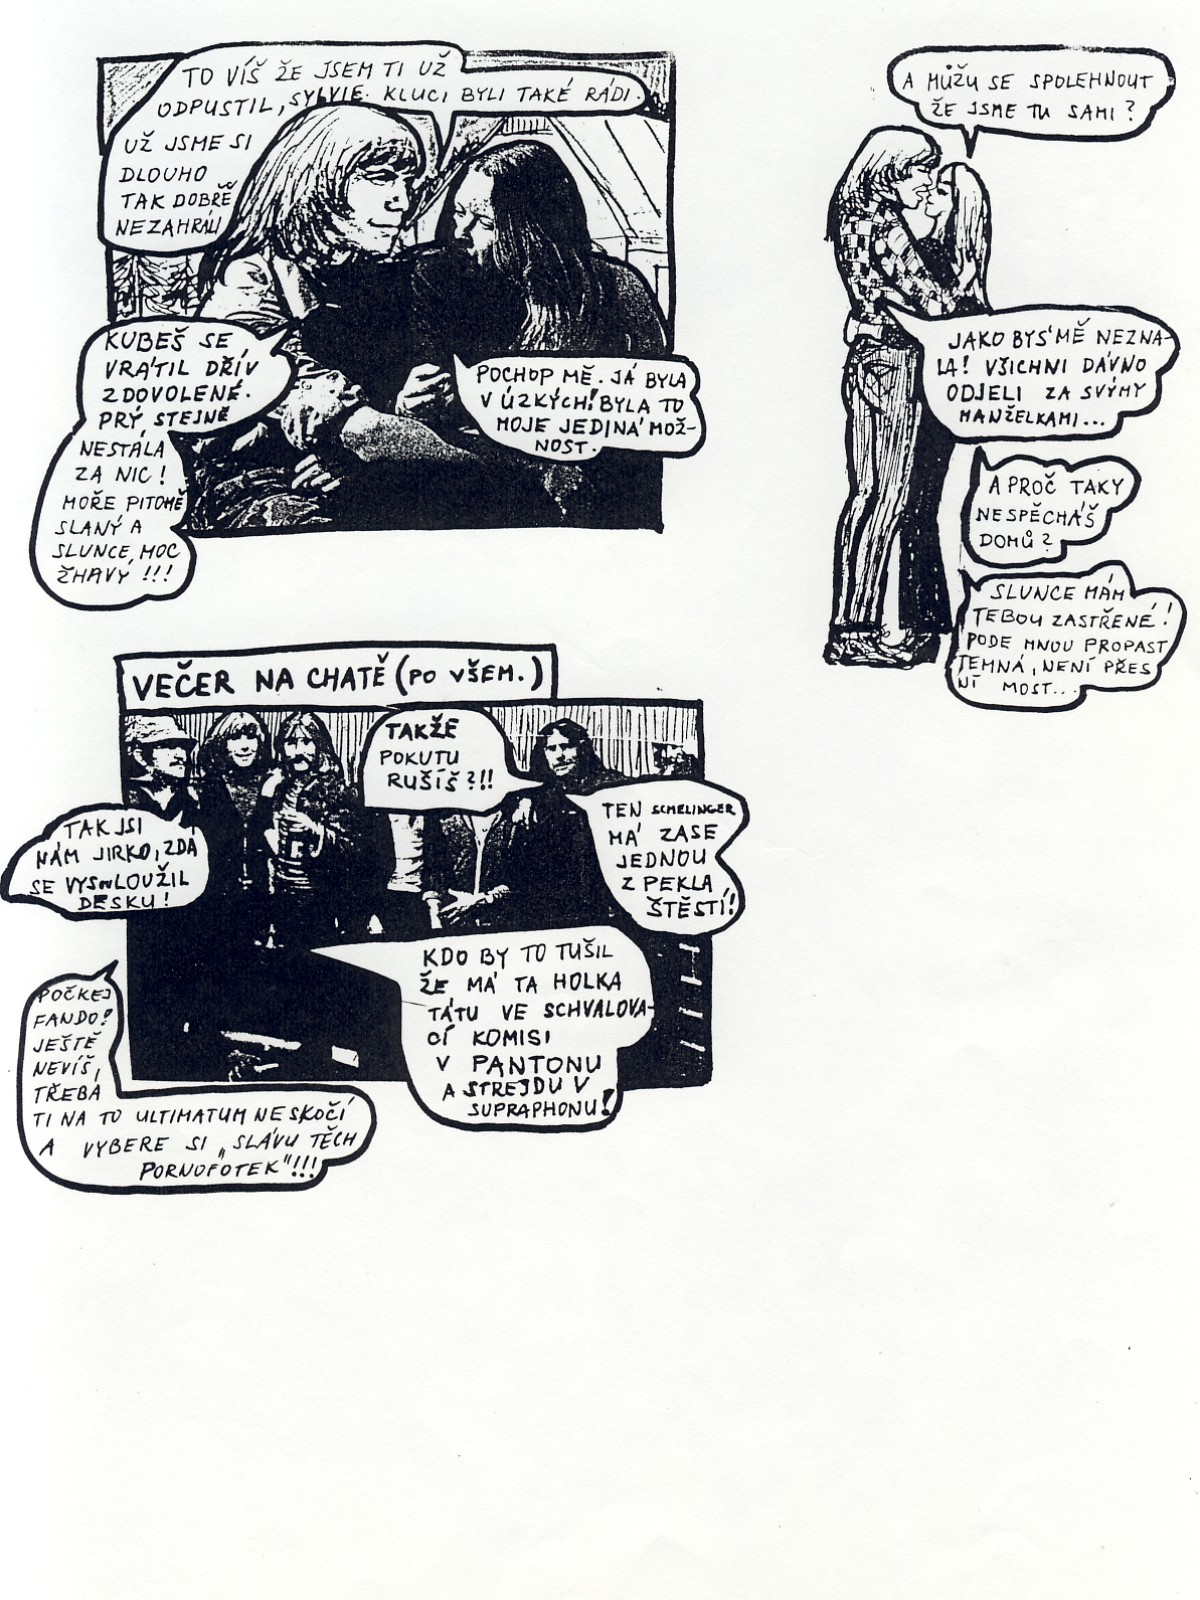 TO VÍŠ ŽE JSEM TI UŽ
ODPUSTIL, SYLVIE. KLUCI BYLI TAKÉ RÁDI.
UŽ JSME SI
DLOUHO
TAK DOBŘE
NEZAHRÁLI
KUBEŠ SE
VRÁTIL DŘÍV
Z DOVOLENÉ.
PRÝ, STEJNĚ
NESTÁLA
ZA NIC!
MOŘE PITOMĚ
SLANÝ A
SLUNCE, MOC
ŽHAVÝ!!!
POCHOP MĚ. JÁ BYLA
V ÚZKÝCH! BYLA TO
MOJE JEDINÁ MOŽ-
NOST.
A MŮŽU SE SPOLEHNOUT
ŽE JSME TU SAMI?
JAKO BYS MĚ NEZNA-
LA! VŠICHNI DÁVNO
ODJELI ZA SVÝMY
MANŽELKAMI...
A PROČ TAKY
NESPĚCHÁŠ
DOMŮ?
SLUNCE MÁM
TEBOU ZASTŘENÉ!
PODE MNOU PROPAST
TEMNÁ, NENÍ PŘES
NÍ MOST...
VEČER NA CHATĚ (PO VŠEM.)
TAKŽE
POKUTU
RUŠÍŠ?!!
TEN SCHELINGER
MÁ ZASE
JEDNOU
Z PEKLA
ŠTĚSTÍ!
TAK JSI
NÁM JIRKO, ZDA
SE VYSOULOUŽIL
DESKU!
KDO BY TO TUŠIL
ŽE MÁ TA HOLKA
TÁTU VE SCHVALOVA-
CÍ KOMISI
V PANTONU
A STREJDU V
SUPRAPHONU!
POČKEJ
FANDO!
JEŠTĚ
NEVÍŠ,
TŘEBA
TI NA TO ULTIMATUM NESKOČÍ
A VYBERE SI „SLÁVU TĚCH
PORNOFOTEK"!!!